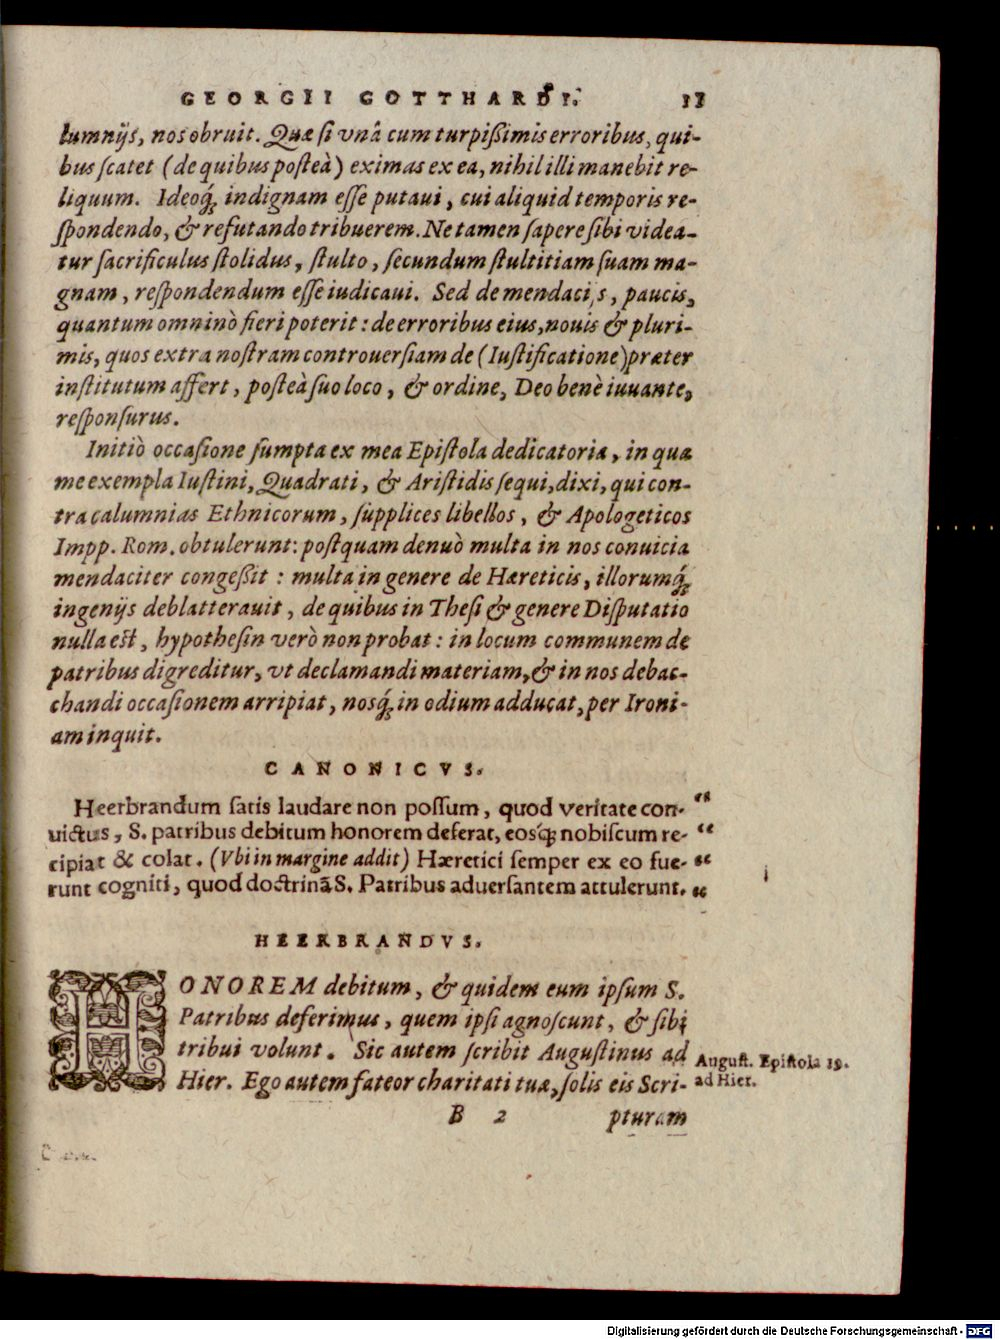 GEORGII GOTTHARDI. 11
lumnijs, nos obruit. Quæ si vnâ cum turpißimis erroribus, qui-
bus scatet (de quibus posteà) eximas ex ea, nihil illi manebit re-
liquum. Ideoq́; indignam esse putaui, cui aliquid temporis re-
spondendo, & refutando tribuerem. Ne tamen sapere sibi videa-
tur sacrificulus stolidus, stulto, secundum stultitiam suam ma-
gnam, respondendum esse iudicaui. Sed de mendacijs, paucis,
quantum omninò fieri poterit: de erroribus eius, nouis & pluri-
mis, quos extra nostram controuersiam de (Iustificatione) præter
institutum affert, posteà suo loco, & ordine, Deo benè iuuante,
responsurus.
Initiò occasione sumpta ex mea Epistola dedicatoria, in qua
me exempla Iustini, Quadrati, & Aristidis sequi, dixi, qui con-
tra calumnias Ethnicorum, supplices libellos, & Apologeticos
Impp. Rom. obtulerunt: postquam denuò multa in nos conuicia
mendaciter congeßit: multa in genere de Hæreticis, illorumq́;
ingenijs deblatterauit, de quibus in Thesi & genere Disputatio
nulla est, hypothesin verò non probat: in locum communem de
patribus digreditur, vt declamandi materiam, & in nos debac-
chandi occasionem arripiat, nosq́; in odium adducat, per Ironi-
am inquit.
CANONICVS.
Heerbrandum satis laudare non possum, quod veritate con-
uictus, S. patribus debitum honorem deferat, eosq́; nobiscum re-
cipiat & colat. (Vbi in margine addit) Hæretici semper ex eo fue-
runt cogniti, quod doctrinã S. Patribus aduersantem attulerunt.
HEERBRANDVS.
HONOREM debitum, & quidem eum ipsum S.
Patribus deferimus, quem ipsi agnoscunt, & sibi
tribui volunt. Sic autem scribit Augustinus ad
Hier. Ego autem fateor charitati tuæ, solis eis Scri-
August. Epistola 19.
ad Hier.
B 2 pturam
Digitalisierung gefördert durch die Deutsche Forschungsgemeinschaft - DFG